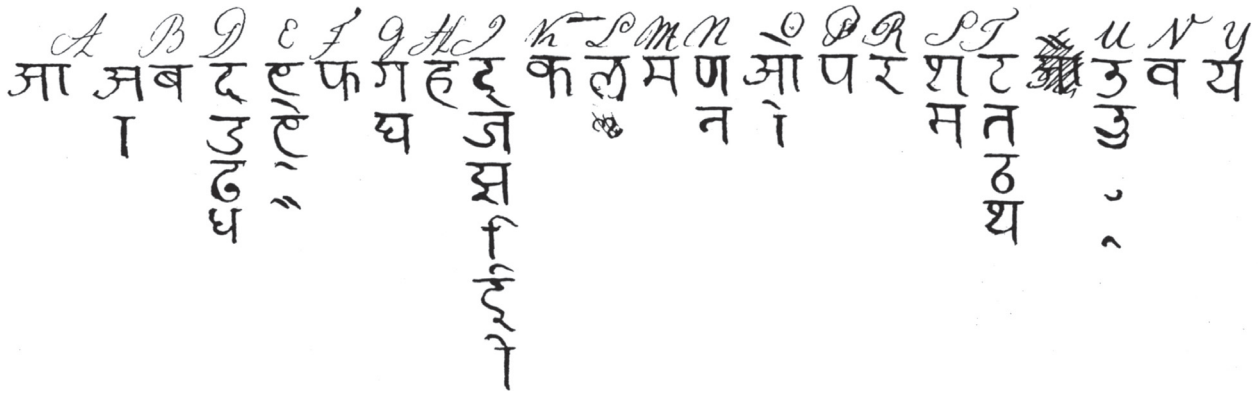 A B D E F G H I K L M N O P R S T U V Y
आ अ ब द ए फ ग ह इ क ल म ण ओ प र श ट उ व य
ा ड ऐ घ ज न ो स त ऊ
ढ े झ ठ ु
ध ै ि थ ू
ई
ी